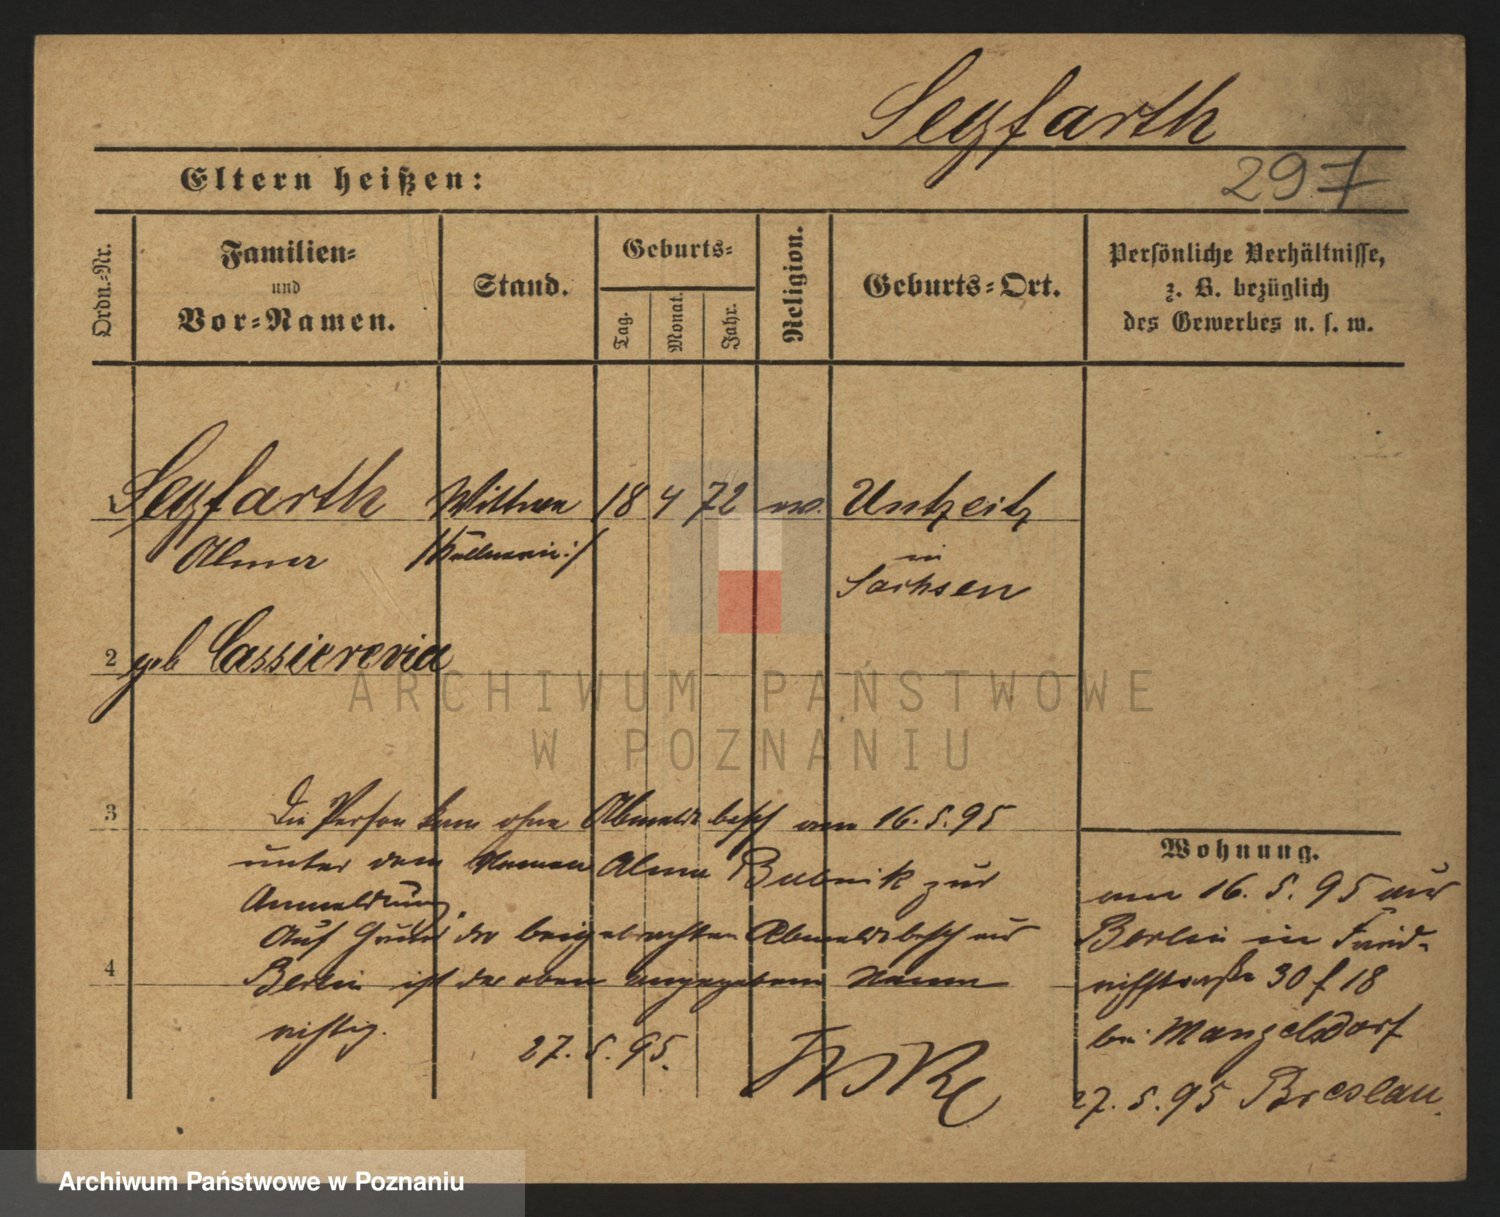 Seyfarth
297
Eltern heißen:
Ordn.-Nr.
Familien-
und
Vor-Namen.
Stand.
Geburts-
Tag.
Monat.
Jahr.
Religion.
Geburts-Ort.
Persönliche Verhältnisse,
z. B. bezüglich
des Gewerbes u. s. w.
1 Seyfarth Wittwe 18 4 72 ev.
Alma
in
Sachsen
2 geb
3 Die Person kam ohne Abmeldebesch am 16.5.95
unter dem Namen Alma Bubnik zur
Anmeldung.
Auf Grund der beigebrachten Abmeldebesch aus
4 Berlin ist der oben angegebene Name
richtig.
27.5.95.
Wohnung.
am 16.5.95 aus
Berlin in Fried-
richstraße 30 18
bei Manzelsdorf
27.5.95 Breslau.
ARCHIWUM PAŃSTWOWE
W POZNANIU
Archiwum Państwowe w Poznaniu